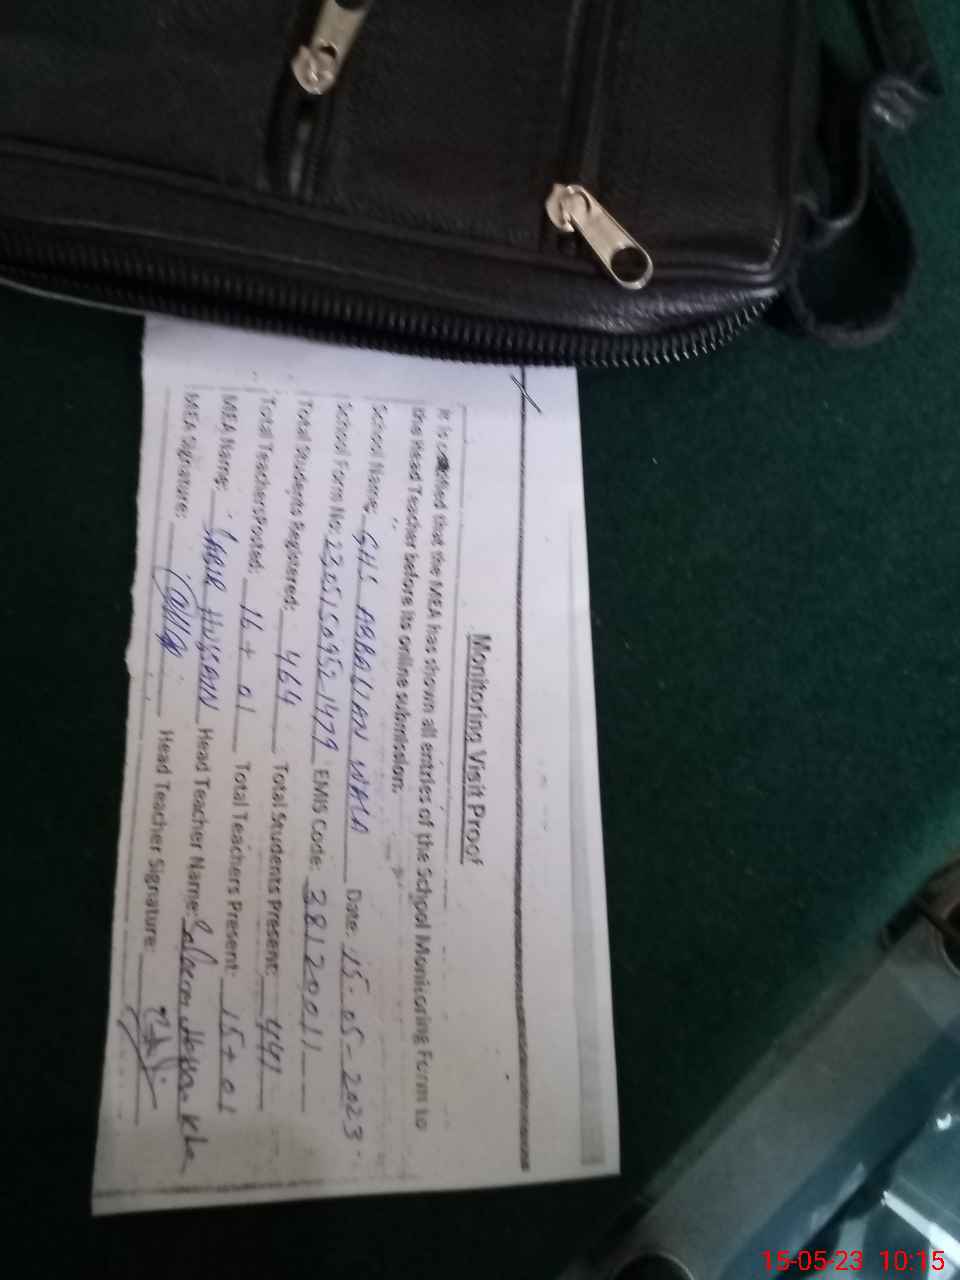 Monitoring Visit Proof
It is certified that the MEA has shown all entries of the School Monitoring Form to
the Head Teacher before its online submission.
School Name: GHS ABBAIIAN WALA Date: 15-05-2023
School Form No: 2305150952-1479 EMIS Code: 38120011
Total Students Registered: 464 Total Students Present: 441
Total TeachersPosted: 16+01 Total Teachers Present: 15+01
MEA Name: SABIR HUSSAIN Head Teacher Name:
MEA Signature: Head Teacher Signature:
15-05-23 10:15